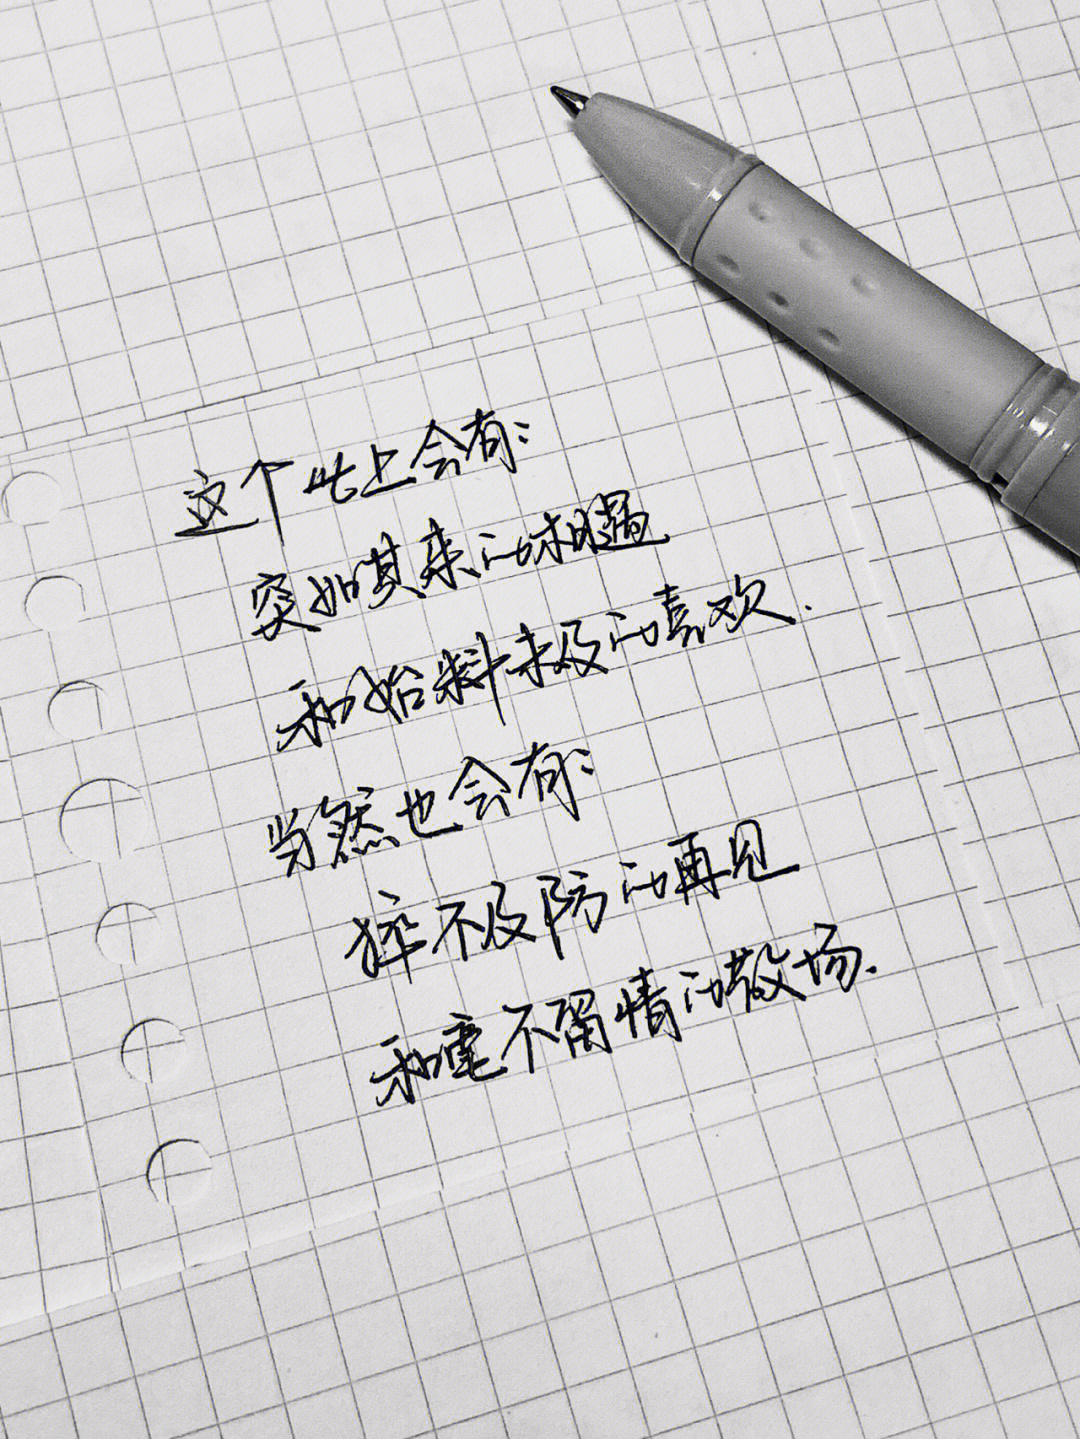 这个世上会有:
突如其来的相遇
和始料未及的喜欢.
当然也会有:
猝不及防的再见
和毫不留情的散场.